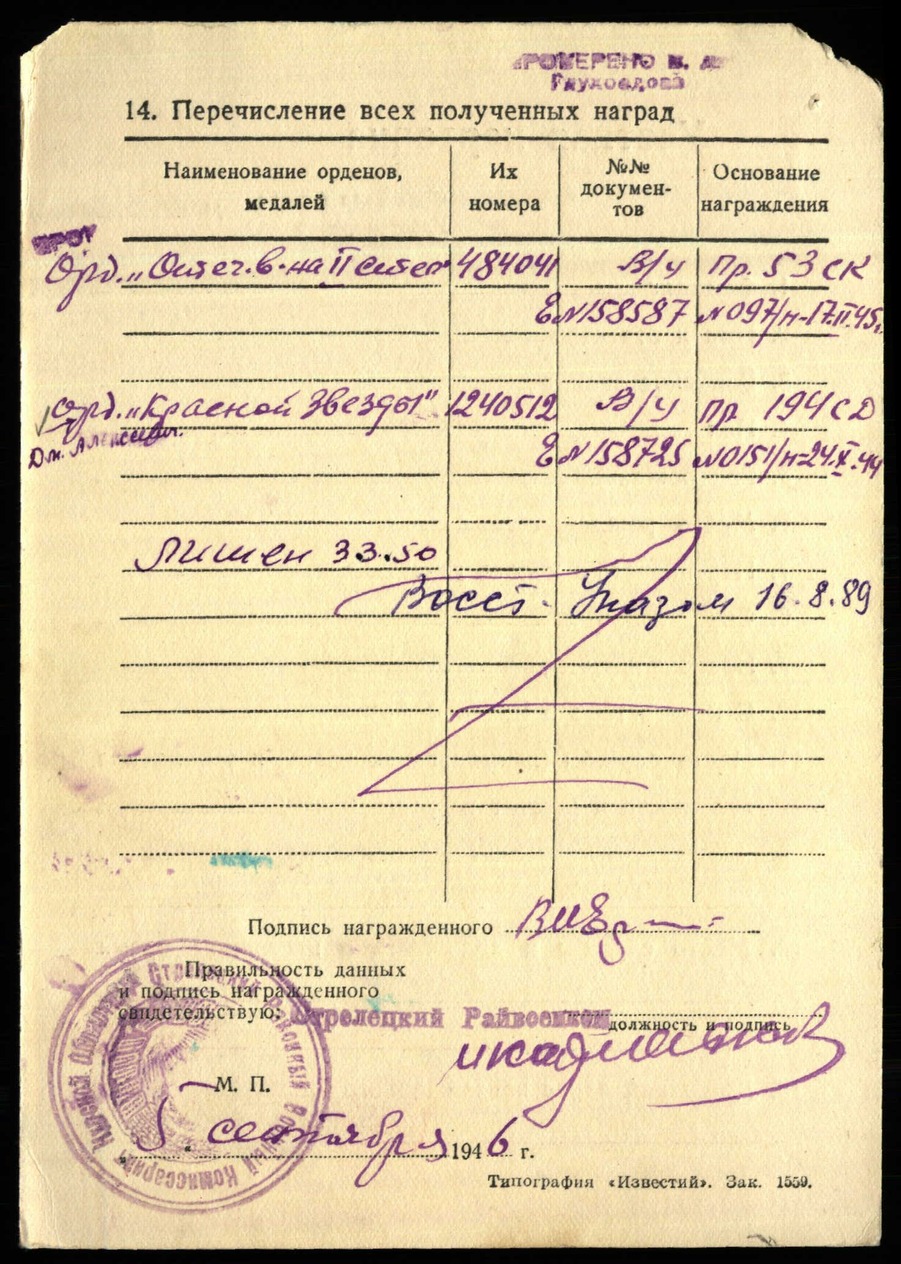 14. Перечисление всех полученных наград
Наименование орденов, медалей
Их номера
№№ документов
Основание награждения
Орд. „Отеч. в-на II степ 484041 В/ч Пр. 53 СК
Е№158587 №097/н-17.II.45г.
Орд. „Красной Звезды" 1240512 В/ч пр 194 СД
Дм. Алексеевич.
Е№158725 №0151/н-24.X.44
Лишен 33.50
Восст. Указом 16.8.89
Подпись награжденного
Правильность данных
и подпись награжденного
свидетельствую: Стрелецкий Райвоенком
должность и подпись
М. П.
5 сентября 1946 г.
Типография «Известий». Зак. 1559.